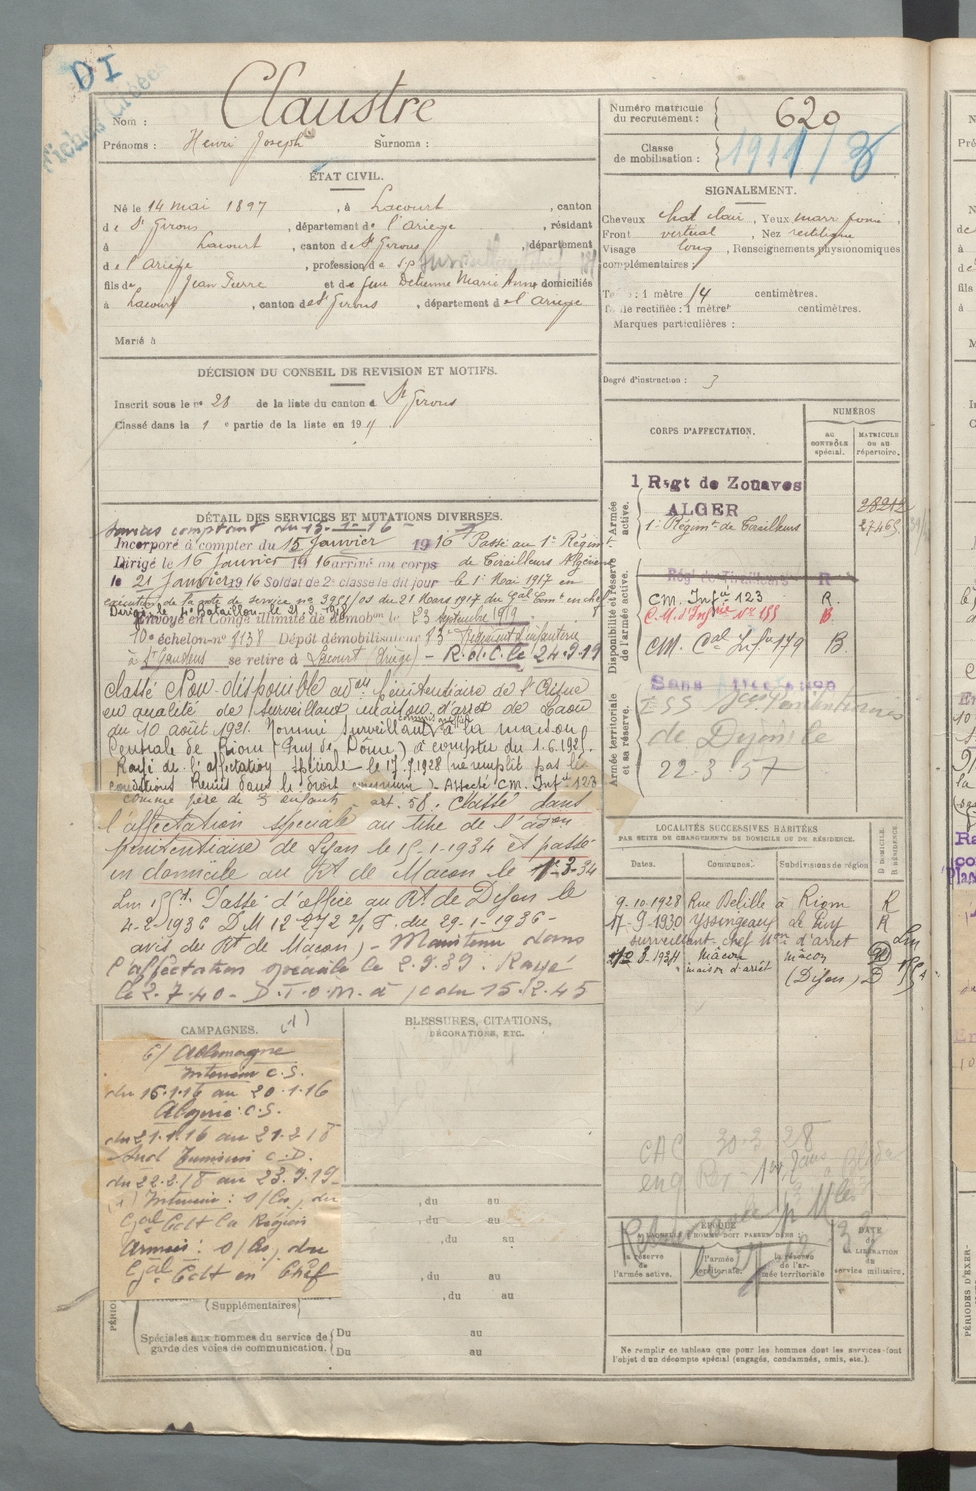 DI
Fiches
Nom : Claustre
Prénoms : Henri Joseph Surnoms :
ÉTAT CIVIL.
Né le 14 mai 1897, à Lacourt, canton
de St Girons, département de l'Ariège, résidant
à Lacourt, canton de St Girons, département
de l'Ariège, profession de
fils de Jean Pierre et de feue Marie Anne domiciliés
à Lacourt, canton de St Girons, département de l'Ariège
Marié à
DÉCISION DU CONSEIL DE REVISION ET MOTIFS.
Inscrit sous le no 28 de la liste du canton de St Girons
Classé dans la 1 e partie de la liste en 191
DÉTAIL DES SERVICES ET MUTATIONS DIVERSES.
Services comptant du 13-1-16
Incorporé à compter du 15 Janvier 1916 Passé au 1er Régimt
Dirigé le 16 Janvier 1916 arrivé au corps de Tirailleurs Algériens
le 21 Janvier 1916 Soldat de 2e classe le dit jour le 1er Mai 1917 en
exécution de la note de service no 3951/03 du 21 Mars 1917 du Gal Comt en chef
Dirigé le 4e Bataillon le 21-2-1918
Envoyé en Congé illimité de démobon le 23 septembre 1919
10e échelon no 8138 Dépôt démobilisateur 83e Régiment d'infanterie
à St Gaudens se retire à Lacourt (Ariège) - R.d.C. le 24-9-19
Classé Non-disponible adon pénitentiaire de
en qualité de surveillant maison d'arrêt de Laon
du 10 août 1921. Nommé surveillant commis greffier à la maison
Centrale de Riom (Puy de Dôme) à compter du 1.6.1925.
Rayé de l'affectation spéciale le 17.9.1928 (ne remplit pas les
conditions Remis dans le droit commun) Affecté CM. Infie 123
comme père de 3 enfants - art. 58. Classé dans
l'affectation spéciale au titre de l'adon
pénitentiaire de Lyon le 15-1-1934 et passé
en domicile au Rt de Macon le 1-3-34
Passé d'office au Rt de Dijon le
4-2-1936 D M 12-272 2/T. du 29-1-1936 -
avis du Rt de Macon) - Maintenu dans
l'affectation spéciale le 2.9.39. Rayé
le 2.7.40 - D.T.O.M. à / cdu 15.2.45
CAMPAGNES. (1)
C/ Allemagne
Intérieur C.S.
du 15.1.16 au 20.1.16
Algérie C.S.
du 21.1.16 au 21.2.18
Sud Tunisien C.D.
du 22.2.18 au 23.9.19
(1) Intérieur : du
Gal Cdt la Région
Armées : du
Gal Cdt en Chef
BLESSURES, CITATIONS,
DÉCORATIONS, ETC.
, du au
, du au
, du au
, du au
, du au
(Supplémentaires)
Spéciales aux hommes du service de
garde des voies de communication.
Du au
Du au
Numéro matricule
du recrutement : 620
Classe
de mobilisation :
SIGNALEMENT.
Cheveux chat clair, Yeux marr foncé,
Front vertical, Nez rectiligne
Visage long, Renseignements physionomiques
complémentaires :
Taille : 1 mètre centimètres.
Taille rectifiée : 1 mètre centimètres.
Marques particulières :
Degré d'instruction : 3
CORPS D'AFFECTATION.
NUMÉROS
AU CONTRÔLE spécial.
MATRICULE OU AU répertoire.
Armée active.
1 Regt de Zouaves
ALGER
28212
1er Régimt de Tirailleurs 27465
Disponibilité et réserve de l'armée active.
Régt de Tirailleurs R
CM. Infie 123 R
C.M. d'Infrie No 153 B.
CM. Cal Inf. 179 B.
Armée territoriale et sa réserve.
Sans Affectation
Pénitentiaires
de Dijon le
22.3.57
LOCALITÉS SUCCESSIVES HABITÉES
PAR SUITE DE CHANGEMENTS DE DOMICILE OU DE RÉSIDENCE.
Dates. Communes. Subdivisions de région
D DOMICILE. R RÉSIDENCE
9.10.1928 Rue Delille à Riom R
17.9.1930 Yssingeaux Le Puy R
surveillant chef Mon d'arrêt
1934 Mâcon mâcon
maison d'arrêt (Dijon) D
CAC 30.3.28
ÉPOQUE
À LAQUELLE L'HOMME DOIT PASSER DANS :
la réserve de l'armée active.
l'armée territoriale.
la réserve de l'armée territoriale
DATE de LA LIBÉRATION du service militaire.
Ne remplir ce tableau que pour les hommes dont les services font
l'objet d'un décompte spécial (engagés, condamnés, omis, etc.).
PÉRIODES D'EXER-